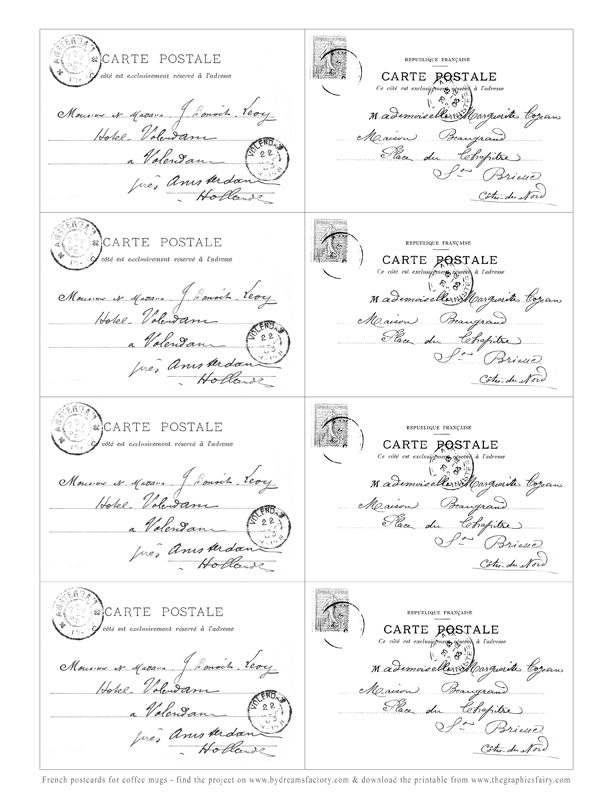 AMSTERDAM
CARTE POSTALE
côté est exclusivement réservé à l'adresse
Monsieur et Madame J. Benoit-Levy
Hotel Volendam
VOLENDAM
22
a Volendam
près Amsterdam
Hollande
REPUBLIQUE FRANÇAISE
CARTE POSTALE
Ce côté est exclusivement réservé à l'adresse
Mademoiselle Marguerite Cozan
Maison Beaugrand
Place du Chapitre
St Brieuc
Côtes-du-Nord
AMSTERDAM
CARTE POSTALE
côté est exclusivement réservé à l'adresse
Monsieur et Madame J. Benoit-Levy
Hotel Volendam
VOLENDAM
22
a Volendam
près Amsterdam
Hollande
REPUBLIQUE FRANÇAISE
CARTE POSTALE
Ce côté est exclusivement réservé à l'adresse
Mademoiselle Marguerite Cozan
Maison Beaugrand
Place du Chapitre
St Brieuc
Côtes-du-Nord
AMSTERDAM
CARTE POSTALE
côté est exclusivement réservé à l'adresse
Monsieur et Madame J. Benoit-Levy
Hotel Volendam
VOLENDAM
22
a Volendam
près Amsterdam
Hollande
REPUBLIQUE FRANÇAISE
CARTE POSTALE
Ce côté est exclusivement réservé à l'adresse
Mademoiselle Marguerite Cozan
Maison Beaugrand
Place du Chapitre
St Brieuc
Côtes-du-Nord
AMSTERDAM
CARTE POSTALE
côté est exclusivement réservé à l'adresse
Monsieur et Madame J. Benoit-Levy
Hotel Volendam
VOLENDAM
22
a Volendam
près Amsterdam
Hollande
REPUBLIQUE FRANÇAISE
CARTE POSTALE
Ce côté est exclusivement réservé à l'adresse
Mademoiselle Marguerite Cozan
Maison Beaugrand
Place du Chapitre
St Brieuc
Côtes-du-Nord
French postcards for coffee mugs - find the project on www.bydreamsfactory.com & download the printable from www.thegraphicsfairy.com